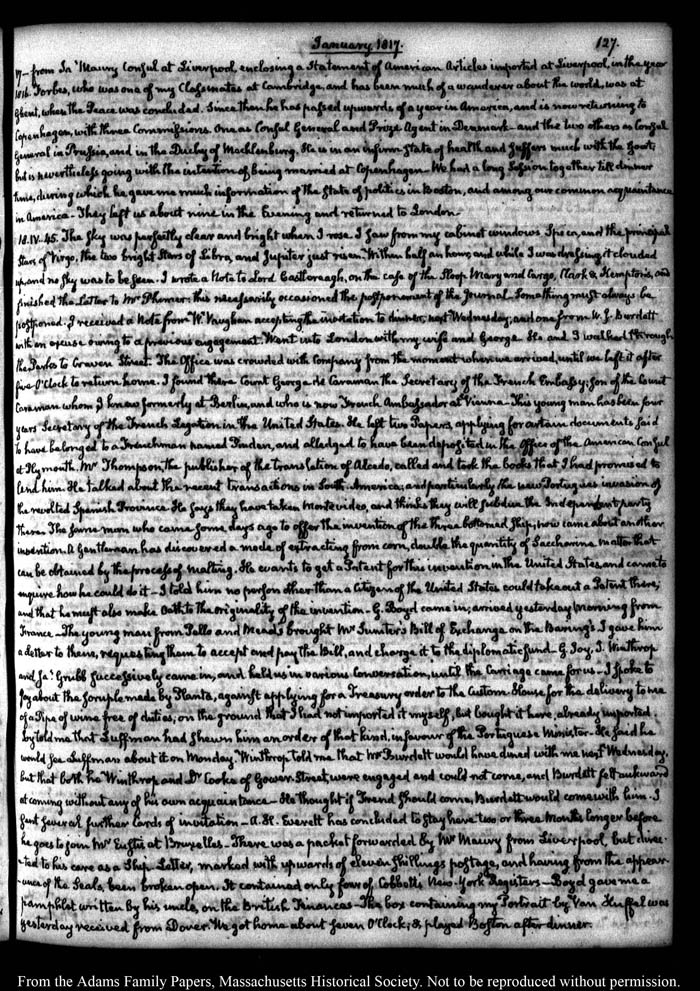 January 1817.
127.
17— from Ja.s Maury Consul at Liverpool, enclosing a Statement of American Articles imported at Liverpool, in the year
1816. Forbes, who was one of my Classmates at Cambridge, and has been much of a wanderer about the world, was at
Ghent, when the Peace was concluded. Since then he has passed upwards of a year in America, and is now returning to
Copenhagen, with three Commissions. One as Consul General and Prize Agent in Denmark— and the two others as Consul
General in Prussia, and in the Duchy of Mecklenburg. He is in an infirm state of health and suffers much with the Gout;
but is nevertheless going with the intention of being married at Copenhagen— We had a long Session together till dinner
time, during which he gave me much information of the State of politics in Boston, and among our common acquaintance
in America— They left us about nine in the Evening and returned to London—
18. IV—45. The Sky was perfectly clear and bright when I rose. I saw from my cabinet windows Spica, and the principal
Stars of Virgo, the two bright Stars of Libra, and Jupiter just risen. Within half an hour, and while I was dressing, it clouded
up, and no Sky was to be seen. I wrote a Note to Lord Castlereagh, on the case of the Sloop Mary and Cargo, Clark & Kempton's, and
finished the Letter to Mr Plumer: this necessarily occasioned the postponement of the Journal. Something must always be
postponed. I received a Note from W. Vaughan accepting the invitation to dinner, next Wednesday, and one from W. J. Burdett
with an excuse owing to a previous engagement. Went into London with my wife and George. He and I walked through
the Parks to Craven Street. The Office was crowded with Company from the moment when we arrived, until we left it after
five O'Clock to return home. I found there Count George de Caraman the Secretary of the French Embassy; son of the Count
Caraman whom I knew formerly at Berlin, and who is now French Ambassador at Vienna— This young man has been four
years Secretary of the French Legation in the United States. He left two Papers, applying for certain documents said
to have belonged to a Frenchman named Pindar, and alledged to have been deposited in the Office of the American Consul
at Plymouth. Mr Thompson, the publisher of the translation of Alcedo, called and took the books that I had promised to
lend him. He talked about the recent transactions in South-America; and particularly the new Portuguese invasion of
the revolted Spanish Province. He says they have taken Montevideo, and thinks they will subdue the Independent party
there. The same man who came some days ago to offer the invention of the three bottomed Ship, now came about another
invention. A Gentleman has discovered a mode of extracting from corn, double the quantity of Saccharine matter that
can be obtained by the process of malting. He wants to get a Patent for this invention in the United States and came to
enquire how he could do it— I told him no person other than a Citizen of the United States could take out a Patent there;
and that he must also make Oath to the originality of the invention— G. Boyd came in; arrived yesterday morning from
France— The young man from Pallo and Mead's brought Mr Sumter's Bill of Exchange on the Baring's. I gave him
a Letter to them, requesting them to accept and pay the Bill, and charge it to the diplomatic fund— G. Joy, T. Winthrop
and Ja.s Grubb successively came in, and held us in various Conversation, until the Carriage came for us— I spoke to
Joy about the scruple made by Planta, against applying for a Treasury order to the Custom House for the delivery to me
of a Pipe of wine free of duties; on the ground that I had not imported it myself, but bought it here, already imported.
Joy told me that Luffman had shewn him an order of that kind, in favour of the Portuguese Minister. He said he
would see Luffman about it on Monday. Winthrop told me that Mr Burdett would have dined with me next Wednesday,
but that both he Winthrop and Dr Cooke of Gower Street, were engaged and could not come, and Burdett felt awkward
at coming without any of his own acquaintance— He thought if Frend should come, Burdett would come with him. I
sent several further Cards of invitation— A. H. Everett has concluded to stay here two or three Months longer before
he goes to join Mr Eustis at Bruxelles. There was a packet forwarded by Mr Maury from Liverpool, but direc-
-ted to his care as a Ship Letter, marked with upwards of eleven shillings postage, and having from the appear-
-ance of the Seals, been broken open. It contained only four of Cobbett's New-York Registers— Boyd gave me a
pamphlet written by his uncle, on the British Finances— The box containing my Portrait by Van Huffel was
yesterday received from Dover. We got home about seven O'Clock; & played Boston after dinner.
From the Adams Family Papers, Massachusetts Historical Society. Not to be reproduced without permission.